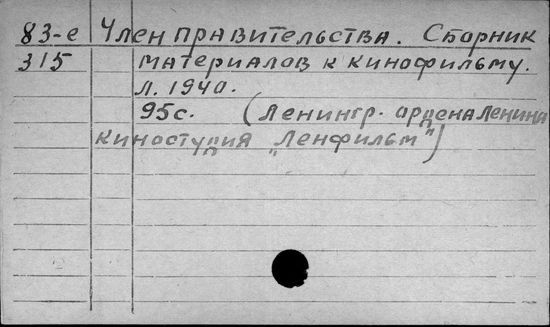 83-е Член правительства. Сборник
315 материалов к кинофильму.
Л. 1940.
95с. (Ленингр. ордена Ленина
киностудия „Ленфильм")